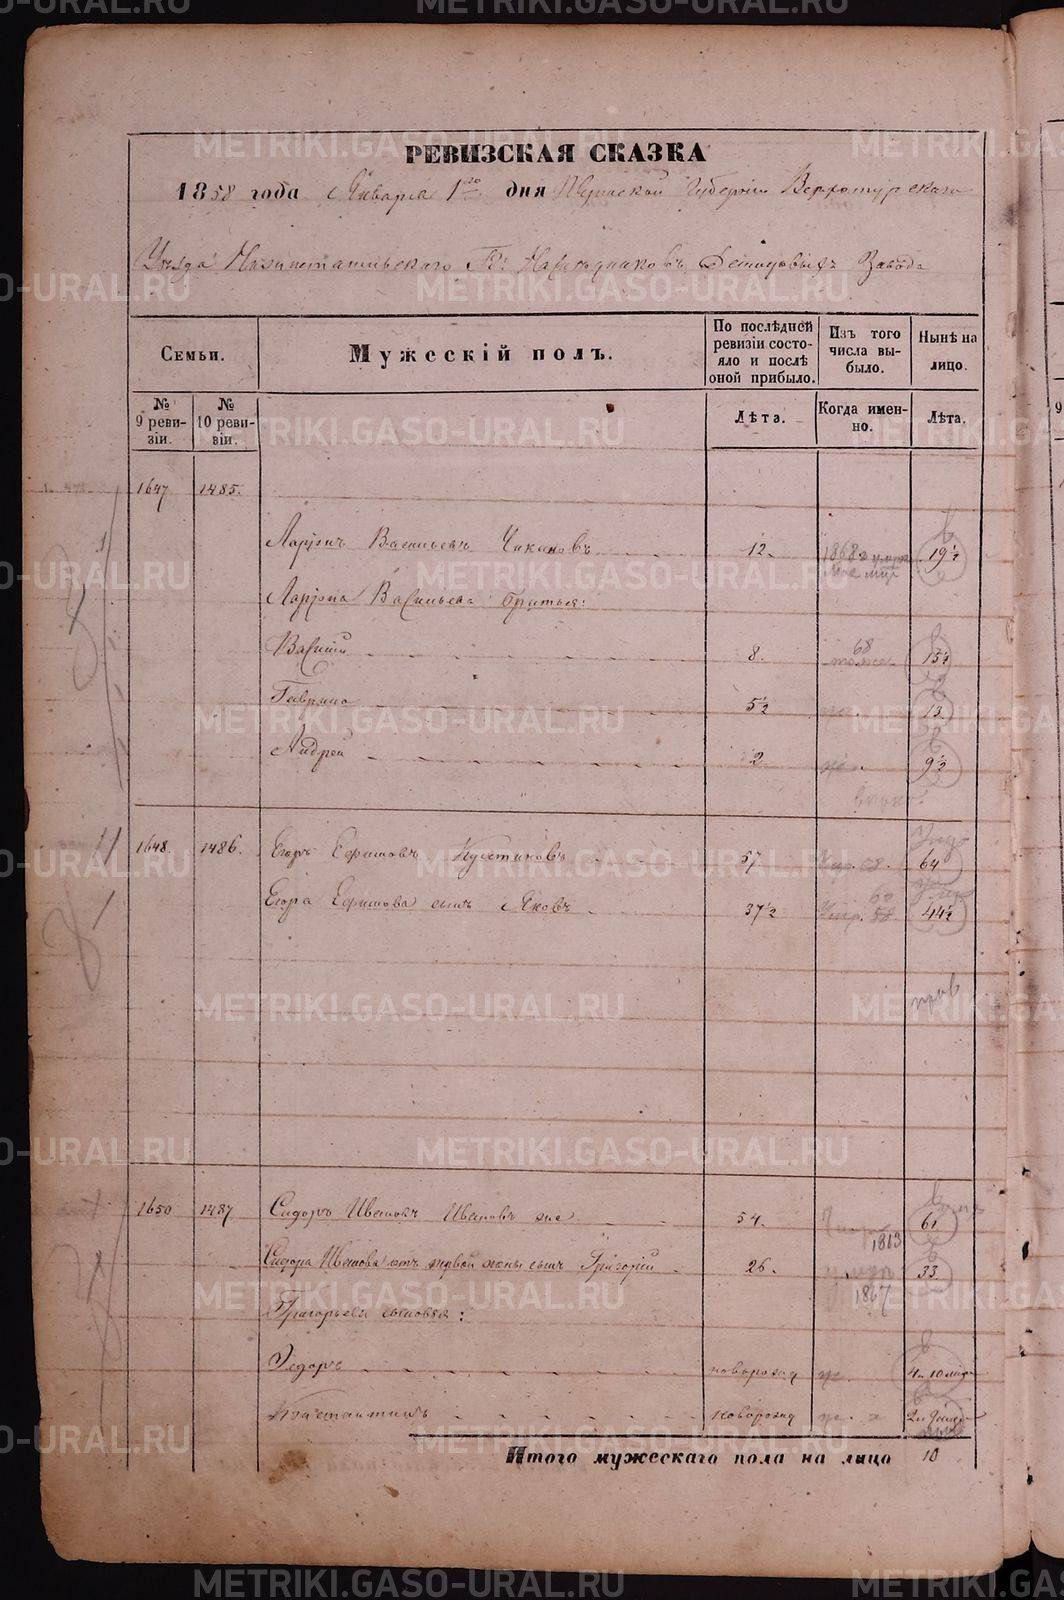 METRIKI.GASO-URAL.RU
РЕВИЗСКАЯ СКАЗКА
1858 года Января 1го дня Пермской Губерніи Верхотурскаго
Уѣзда Нижнетагильскаго Гг. Наслѣдниковъ Демидовыхъ Завода
Семьи.
Мужескій полъ.
По послѣдней ревизіи состояло и послѣ оной прибыло.
Изъ того числа выбыло.
Нынѣ на лицо.
№ 9 ревизіи.
№ 10 ревизіи.
Лѣта.
Когда именно.
Лѣта.
1647 1485.
Ларіонъ Васильевъ 12. 1868 19½
Ларіона Васильева братья:
Василій 8. 68 15½
Гаврило 5½ 13.
Андрей 2 9½
1648. 1486. Егоръ Ефимовъ 57. 68. 64
Егора Ефимова сынъ Яковъ 37½ 44½
1650 1487. Сидоръ Ивановъ Ивановъ же 54. 1863 61
Сидора Иванова отъ первой жены сынъ Григорій 26. 1867 33.
Григорьевы сыновья:
Федоръ новорожд
Константинъ новорожд
Итого мужескаго пола на лицо 10